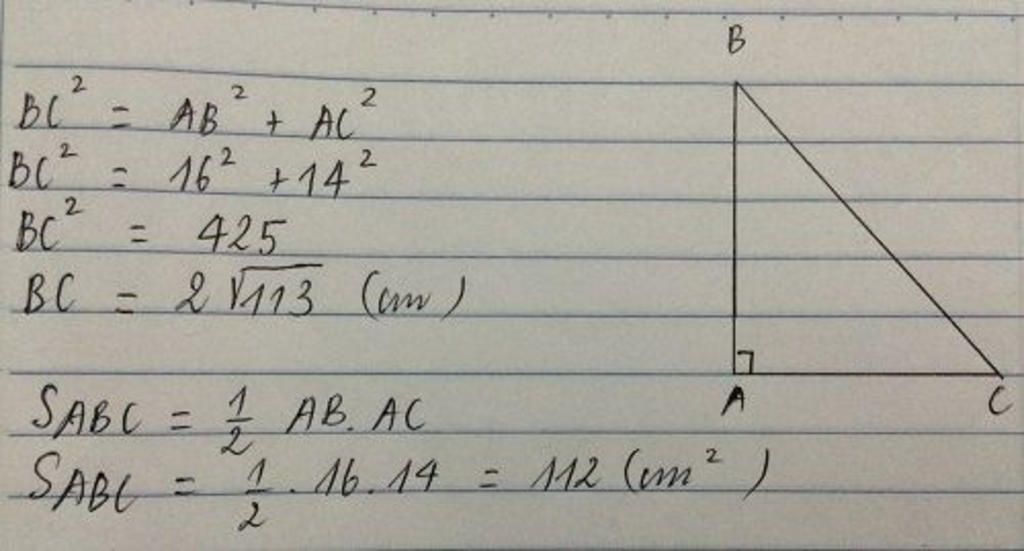 BC² = AB² + AC²
BC² = 16² + 14²
BC² = 425
BC = 2√113 (cm)
S_ABC = 1/2 AB. AC
S_ABC = 1/2 . 16 . 14 = 112 (cm²)
B
A
C